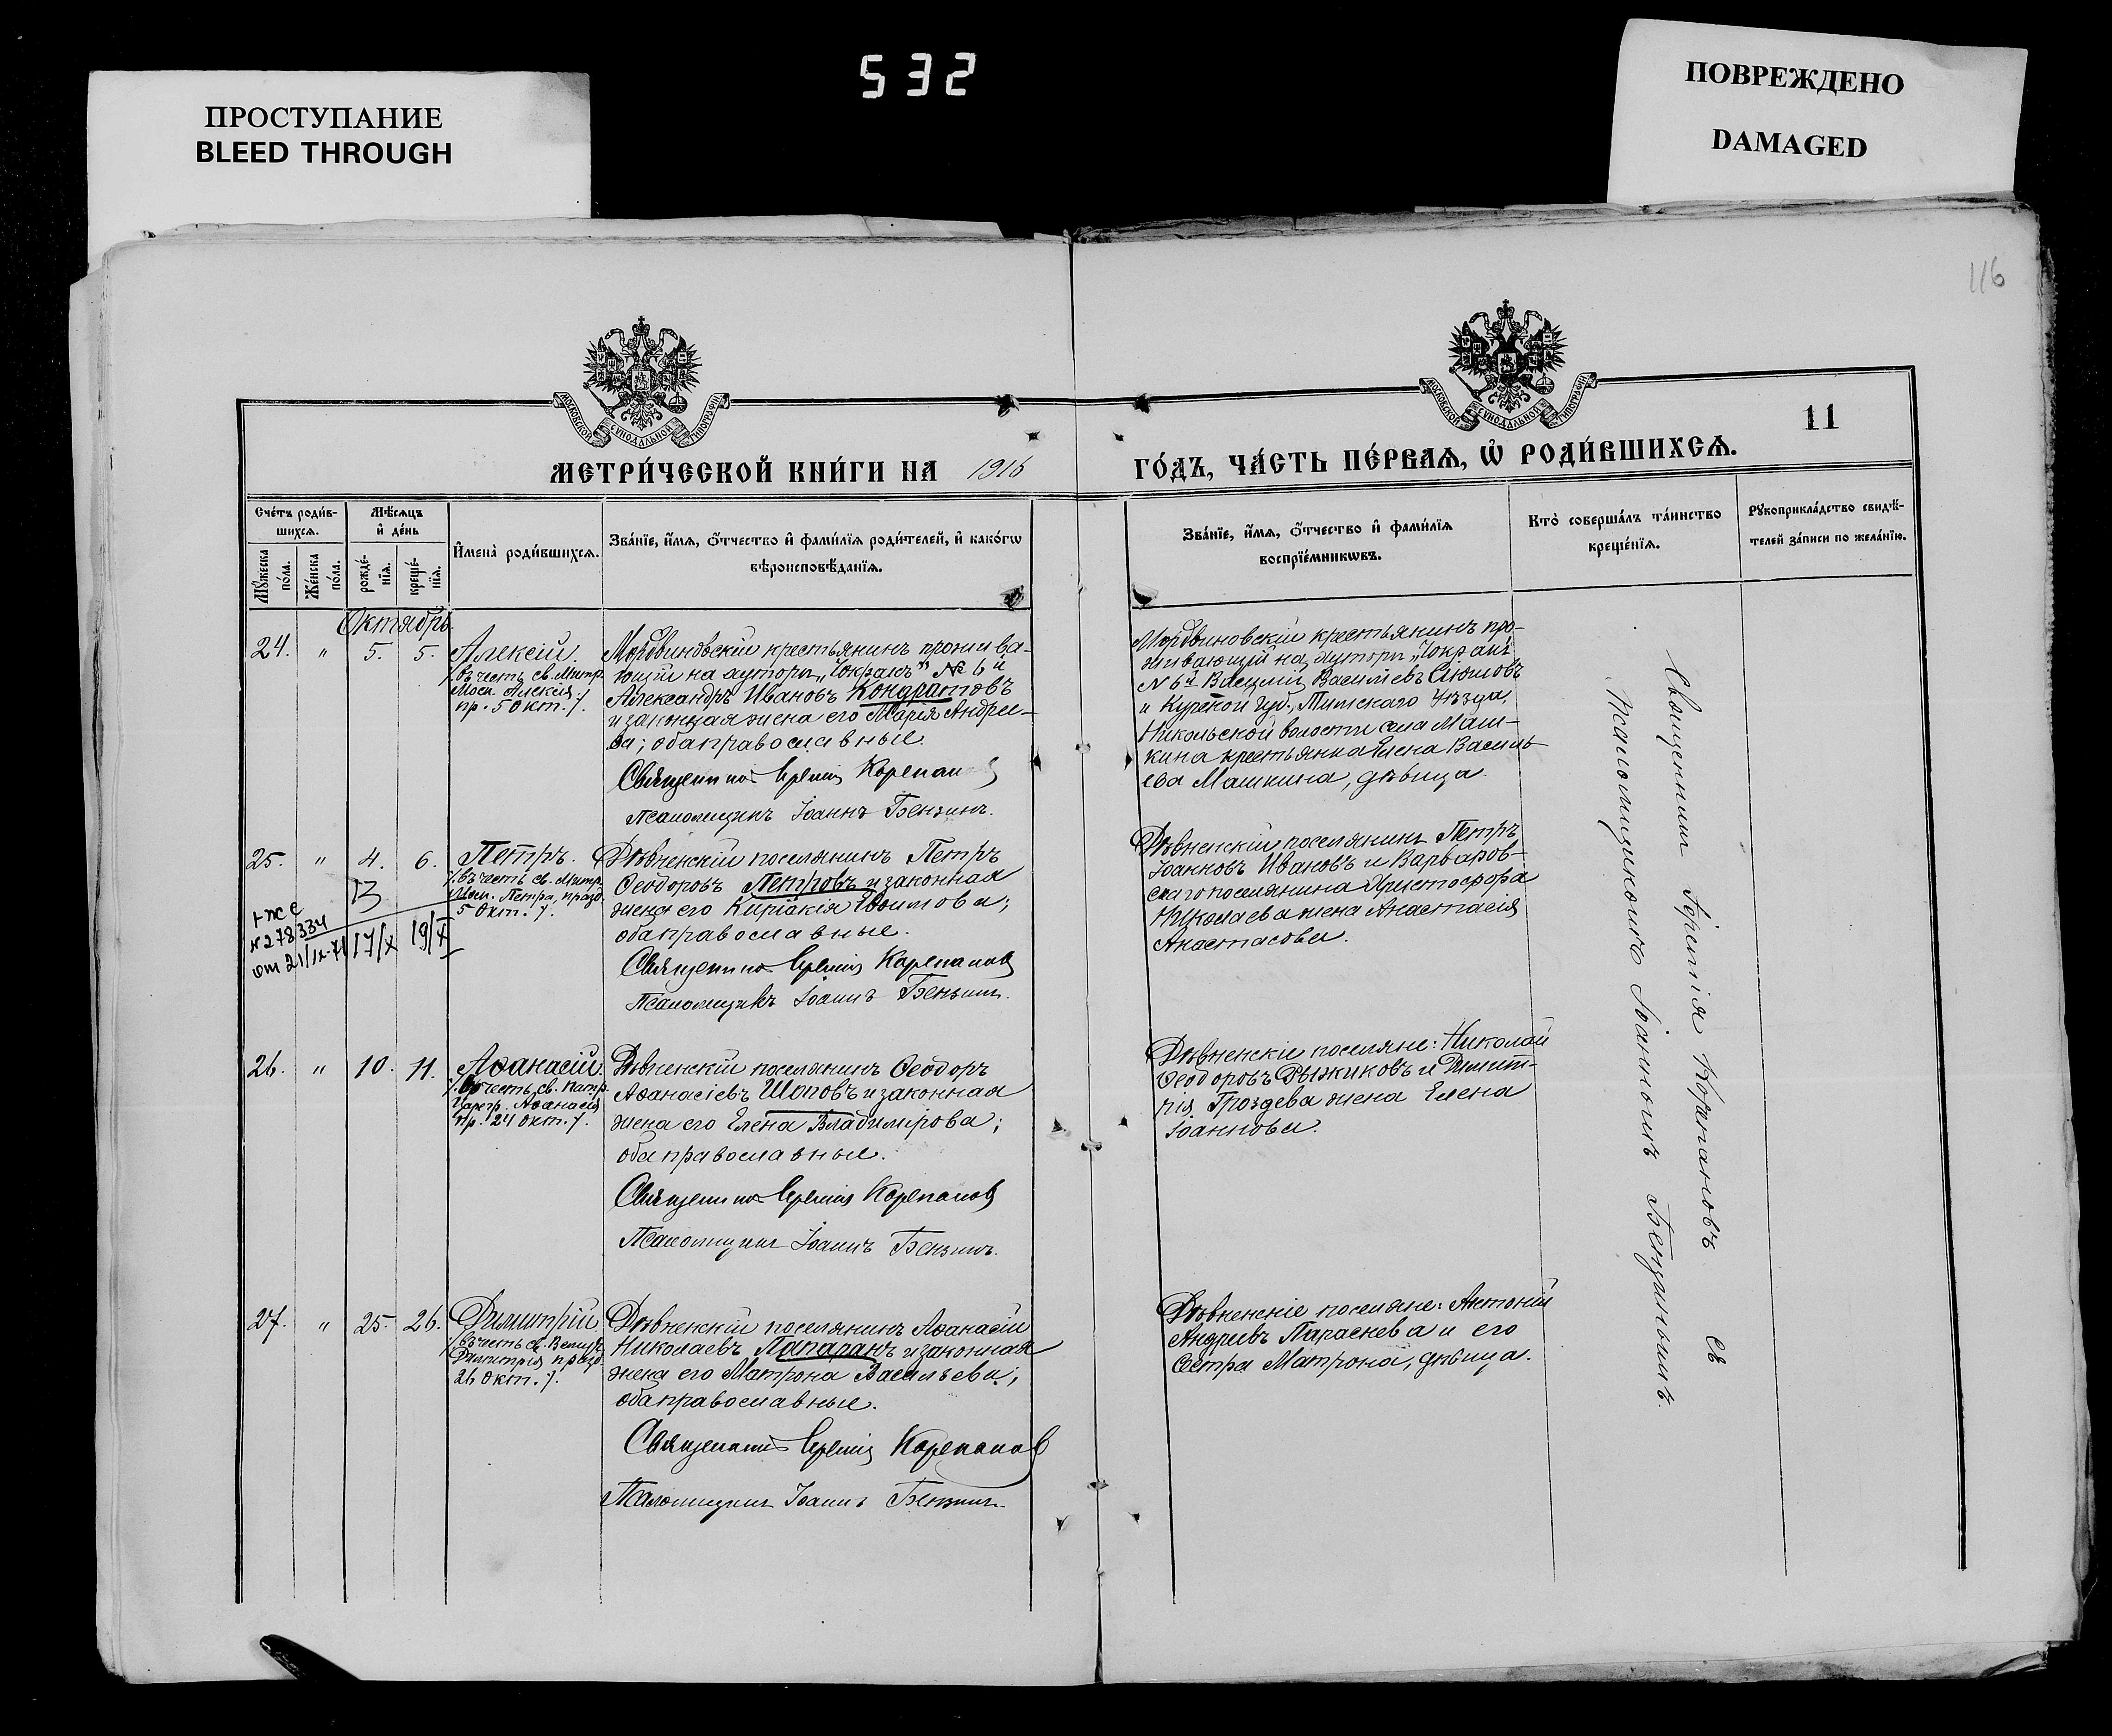 532
ПРОСТУПАНИЕ
BLEED THROUGH
ПОВРЕЖДЕНО
DAMAGED
116
МОСКОВСКОЙ СѴНОДАЛЬНОЙ ТИПОГРАФІИ
МОСКОВСКОЙ СѴНОДАЛЬНОЙ ТИПОГРАФІИ
11
МЕТРИ́ЧЕСКОЙ КНИ́ГИ НА 1916
ГО́ДЪ, ЧА́СТЬ ПЕ́РВАѦ, Ѡ҆ РОДИ́ВШИХСѦ.
Сче́тъ роди́в-
шихсѧ.
Мꙋ́жеска по́ла.
Же́нска по́ла.
Мѣ́сѧцъ и҆ де́нь
рожде́-
нїѧ.
креще́-
нїѧ.
И҆мена̀ роди́вшихсѧ.
Зва́нїе, и҆́мѧ, ѻ҆́тчество и҆ фами́лїѧ роди́телей, и҆ како́гѡ
вѣроисповѣ́данїѧ.
Зва́нїе, и҆́мѧ, ѻ҆́тчество и҆ фами́лїѧ
воспрїе́мникѡвъ.
Кто̀ соверша́лъ та́инство
креще́нїѧ.
Рꙋкоприкла́дство свидѣ́-
телей за́писи по жела́нїю.
Октябрь.
24. " 5. 5. Алексій.
/въ честь св. Митр.
Моск. Алексія
пр. 5 Окт./.
Мордвиновскій крестьянинъ прожива-
ющій на хуторѣ „Чокракъ" № 6й
Александръ Ивановъ Кондратовъ
и законная жена его Марія Андрее-
ва; оба православные.
Священникъ Іеремія Корепановъ
Псаломщикъ Іоаннъ Бензинъ.
Мордвиновскій крестьянинъ про-
живающій на хуторѣ „Чокракъ
N 6й Василій Васильевъ
и Курской губ., Тимскаго Уѣзда,
Никольской волости села Маш-
кина крестьянка Елена Василь-
ева Машкина, дѣвица.
25. " 4. 6. Петръ.
/въ честь св. Митр.
Моск. Петра, празд.
5 Окт./.
N 278334
от 21/IX-71 17/X 19/X
Дѣвненскій поселянинъ Петръ
Ѳеодоровъ Петровъ и законная
жена его Киріакія Евѳимова;
оба православные.
Священникъ Іеремія Корепановъ
Псаломщикъ Іоаннъ Бензинъ.
Дѣвненскій поселянинъ Петръ
Іоанновъ Ивановъ и Варваров-
скаго поселянина Христофора
Николаева жена Анастасія
Анастасова.
26. " 10. 11. Аѳанасій.
/въ честь св. патр.
Царегр. Аѳанасія
пр. 24 окт./.
Дѣвненскій поселянинъ Ѳеодоръ
Аѳанасіевъ Шоповъ и законная
жена его Елена Владимірова;
оба православные.
Священникъ Іеремія Корепановъ
Псаломщикъ Іоаннъ Бензинъ.
Дѣвненскіе поселяне: Николай
Ѳеодоровъ Рыжиковъ и Димит-
рія Гроздева жена Елена
Іоаннова.
27. " 25. 26. Димитрій
/въ честь св. Великом.
Димитрія празд.
26 окт./.
Дѣвненскій поселянинъ Аѳанасій
Николаевъ Папаранъ и законная
жена его Матрона Васильева;
оба православные.
Священникъ Іеремія Корепановъ
Псаломщикъ Іоаннъ Бензинъ.
Дѣвненскіе поселяне: Антоній
Андреевъ Параскева и его
сестра Матрона, дѣвица.
Священникъ Іеремія Корепановъ съ
псаломщикомъ Іоанномъ Бензинымъ.